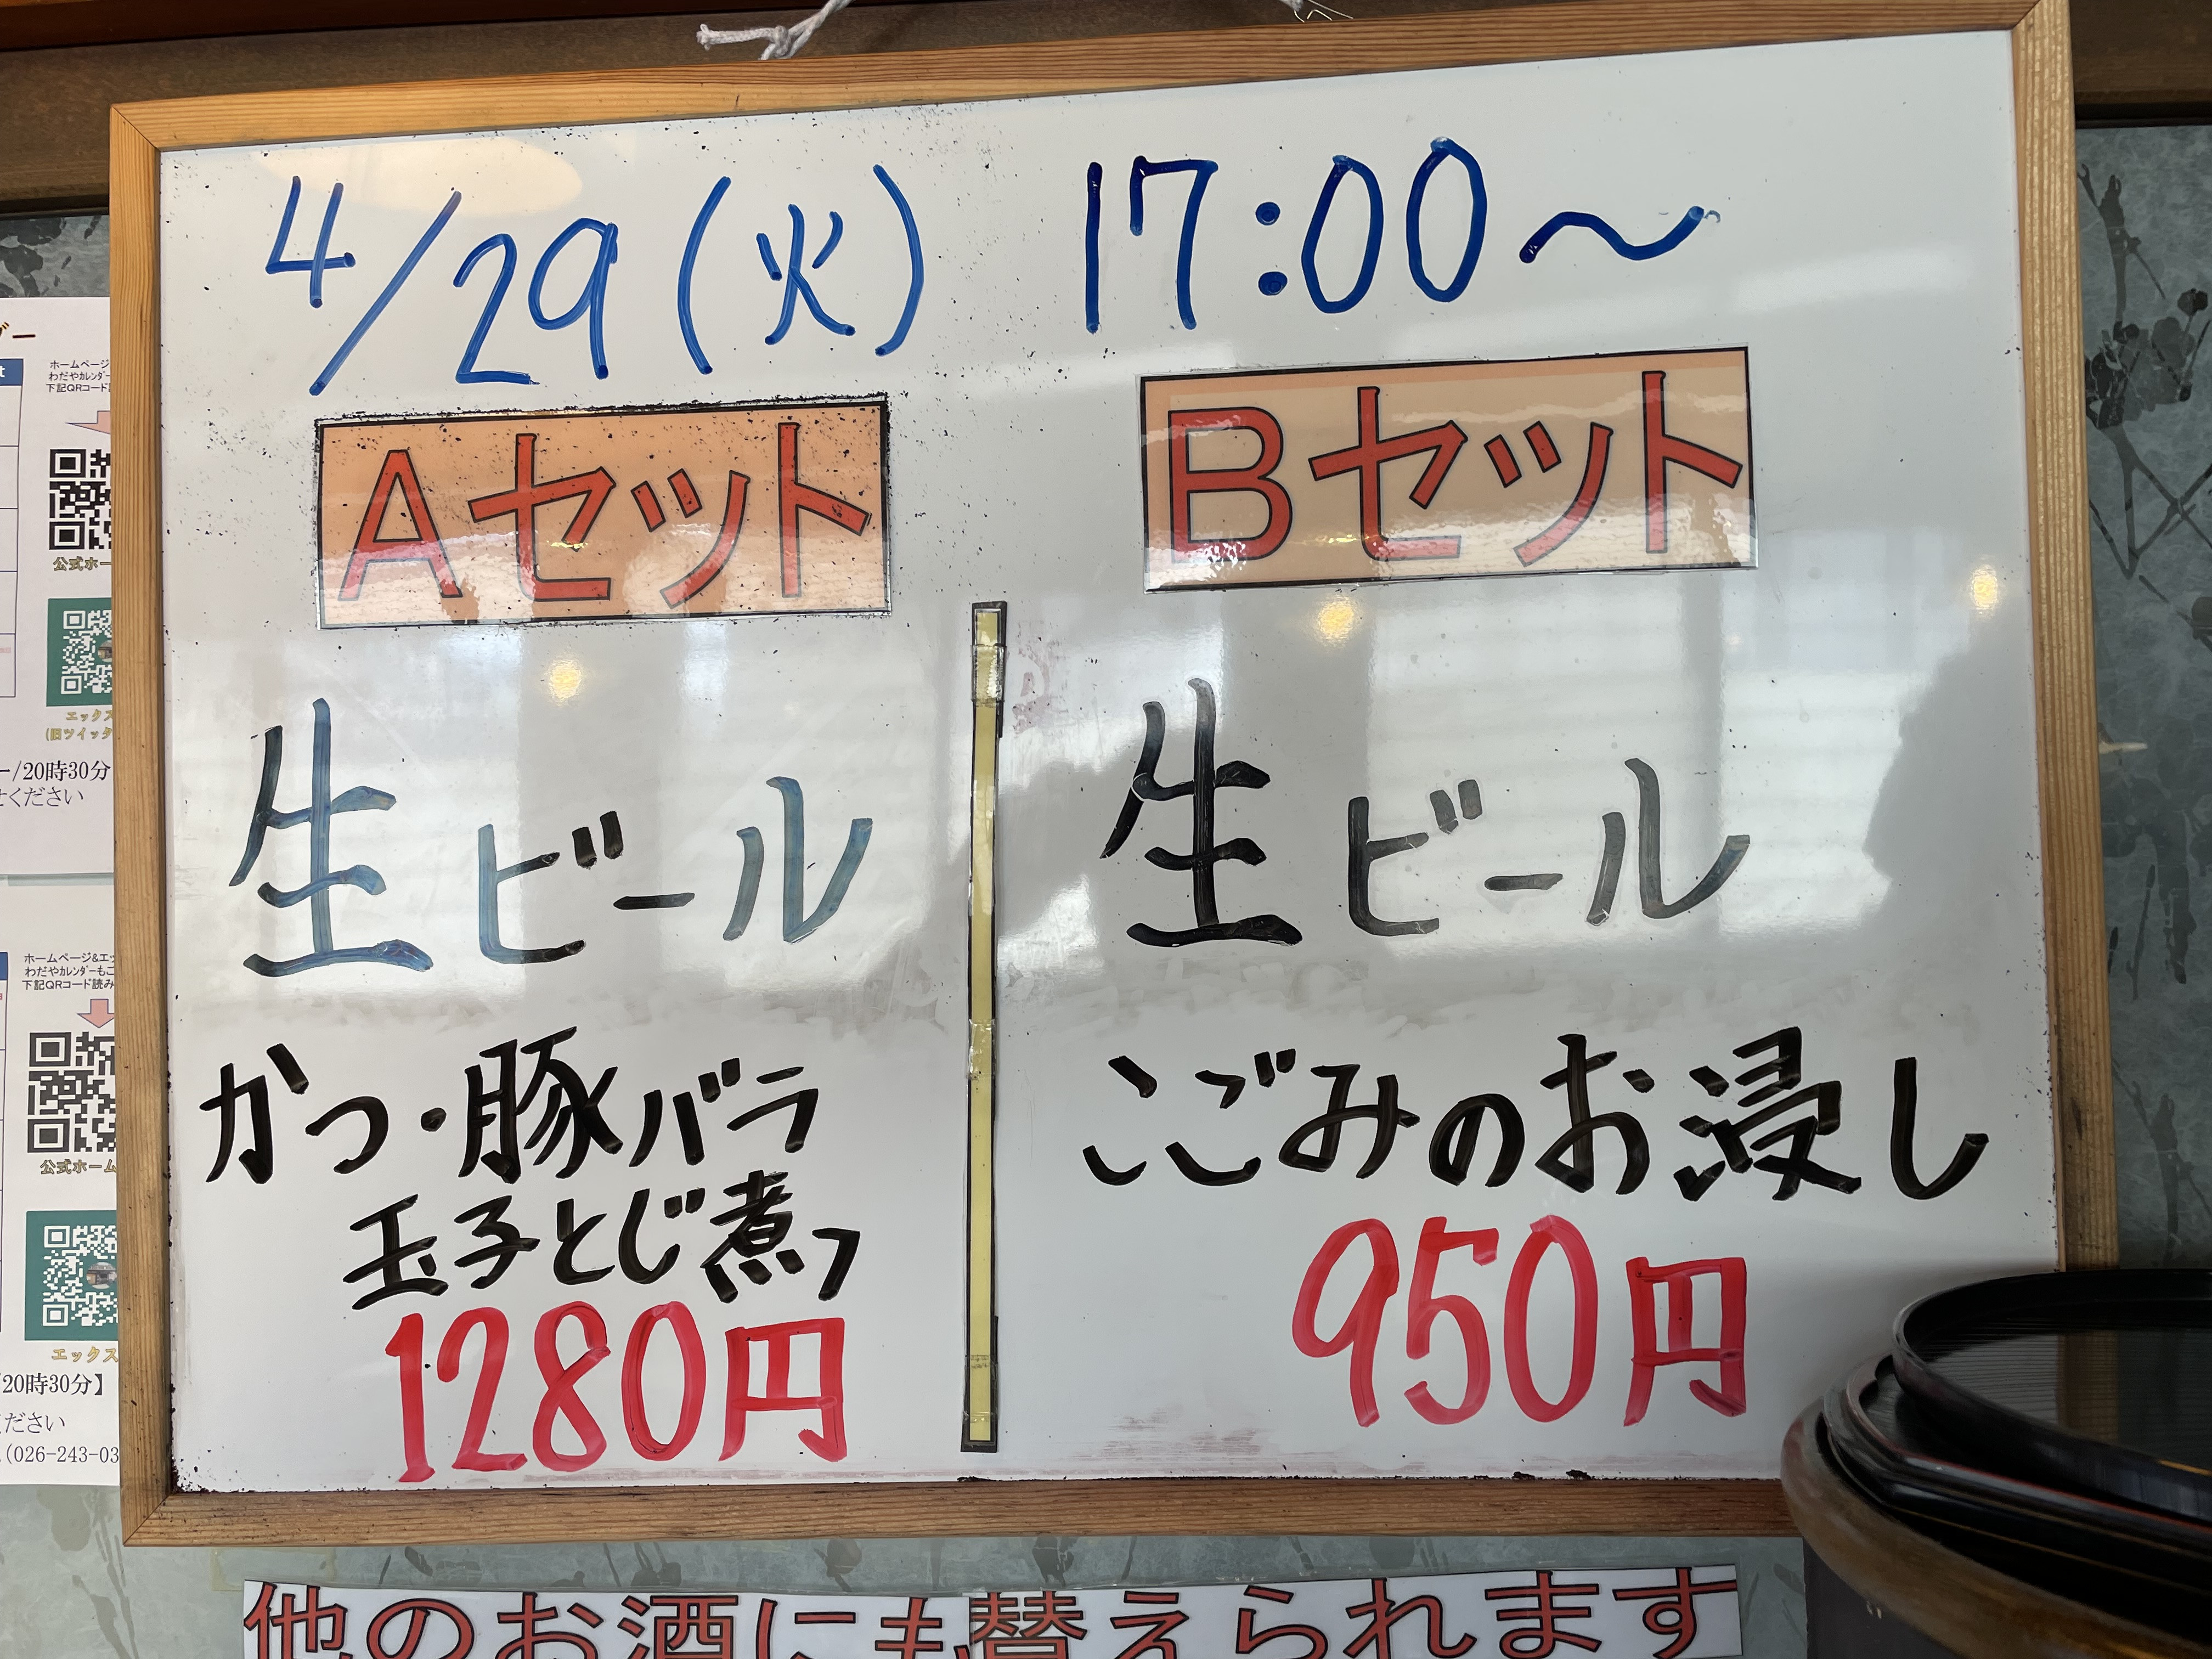 4/29(火) 17:00〜
Aセット
生ビール
かつ・豚バラ
玉子とじ煮
1280円
Bセット
生ビール
こごみのお浸し
950円
他のお酒にも替えられます
ホームページ
わだやカレンダー
下記QRコード
公式ホー
エックス
(旧ツイッタ
ー/20時30分
ください
ホームページ&エッ
わだやカレンダーもこ
下記QRコード読み
公式ホーム
エックス
20時30分】
ください
(026-243-03